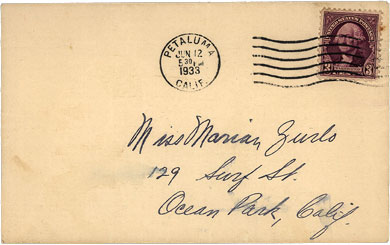 PETALUMA
JUN 12
5 30 PM
1933
CALIF.
3 3
Miss Marian Zurlo
129 Surf St.
Ocean Park, Calif.